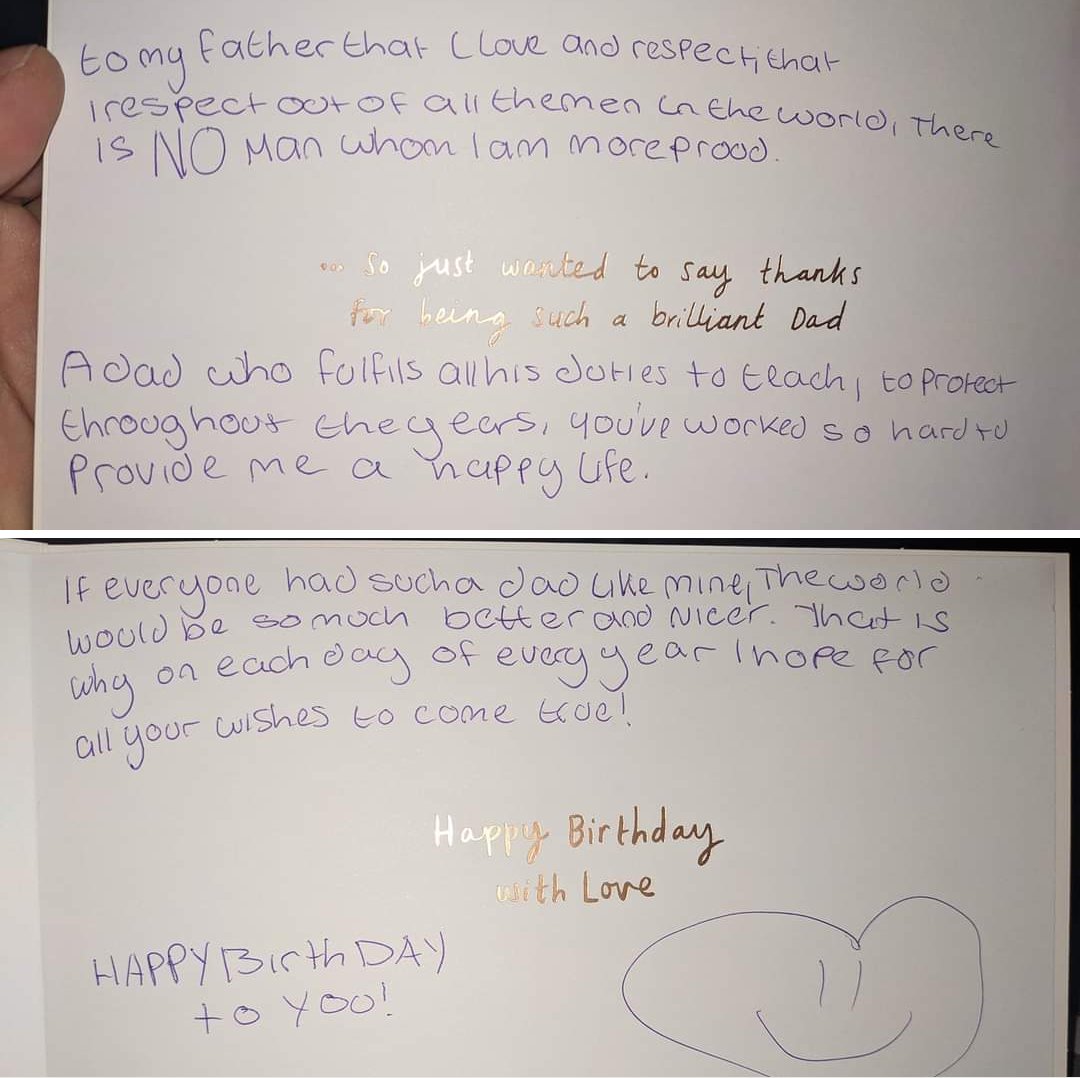 to my father that I love and respect, that
I respect out of all the men in the world, There
is NO Man whom I am more proud.
... So just wanted to say thanks
for being such a brilliant Dad
A dad who fulfils all his duties to teach, to protect
throughout the years, you've worked so hard to
Provide me a happy life.
If everyone had such a dad like mine, The world
would be so much better and Nicer. That is
why on each day of every year I hope for
all your wishes to come true!
Happy Birthday
with Love
HAPPY BirthDAY
to YOU!